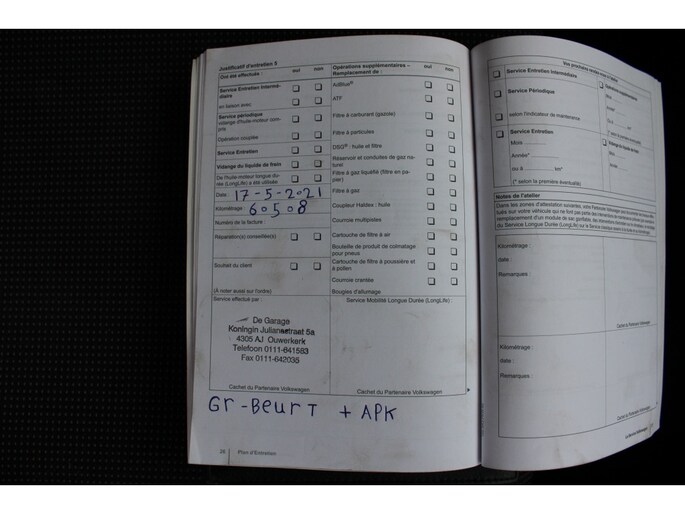 Justificatif d'entretien 3
Ont été effectués : oui non
Service Entretien Intermé-
diaire
en liaison avec
Service périodique
vidange d'huile-moteur com-
pris
Opération couplée
Service Entretien
Vidange du liquide de frein
De l'huile-moteur longue du-
rée (LongLife) a été utilisée
Date : 17-5-2021
Kilométrage : 60508
Numéro de la facture :
Réparation(s) conseillée(s)
Souhait du client
(À noter aussi sur l'ordre)
Service effectué par :
De Garage
Koningin Julianastraat 5a
4305 AJ Ouwerkerk
Telefoon 0111-641583
Fax 0111-642035
Cachet du Partenaire Volkswagen
Opérations supplémentaires –
Remplacement de : oui non
AdBlue®
ATF
Filtre à carburant (gazole)
Filtre à particules
DSG® : huile et filtre
Réservoir et conduites de gaz na-
turel
Filtre à gaz liquéfié (filtre en pa-
pier)
Filtre à gaz
Coupleur Haldex : huile
Courroie multipistes
Cartouche de filtre à air
Bouteille de produit de colmatage
pour pneus
Cartouche de filtre à poussière et
à pollen
Courroie crantée
Bougies d'allumage
Service Mobilité Longue Durée (LongLife) :
Cachet du Partenaire Volkswagen
Gr-Beurt + APK
26 Plan d'Entretien
Service Entretien Intermédiaire
Service Périodique
selon l'indicateur de maintenance
Service Entretien
Mois
Année*
ou à km*
(* selon la première éventualité)
Opérations supplémentaires
Vidange du liquide de frein
Notes de l'atelier
Kilométrage :
date :
Remarques :
Cachet du Partenaire Volkswagen
Kilométrage :
date :
Remarques :
Cachet du Partenaire Volkswagen